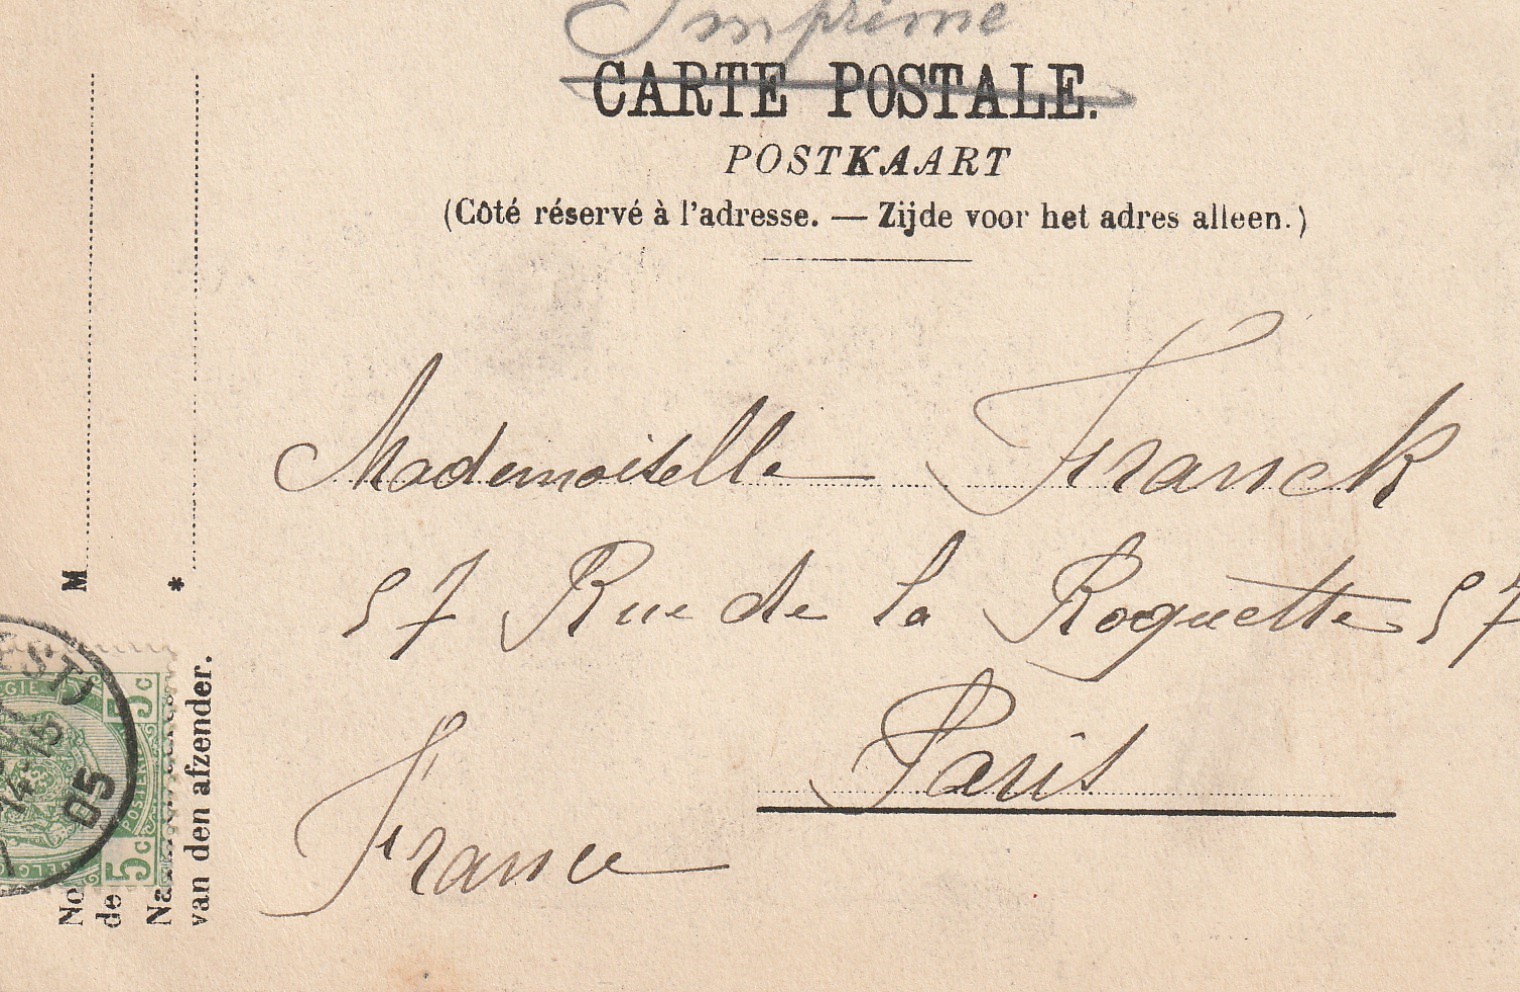 Imprimé
CARTE POSTALE.
POSTKAART
(Côté réservé à l'adresse. — Zijde voor het adres alleen.)
Mademoiselle Franck
57 Rue de la Roquette 57
Paris
France
M
*
No
de
Na
van den afzender.
EST)
14-15
05
GIE
5c
POSTERIJ
5c
BELG